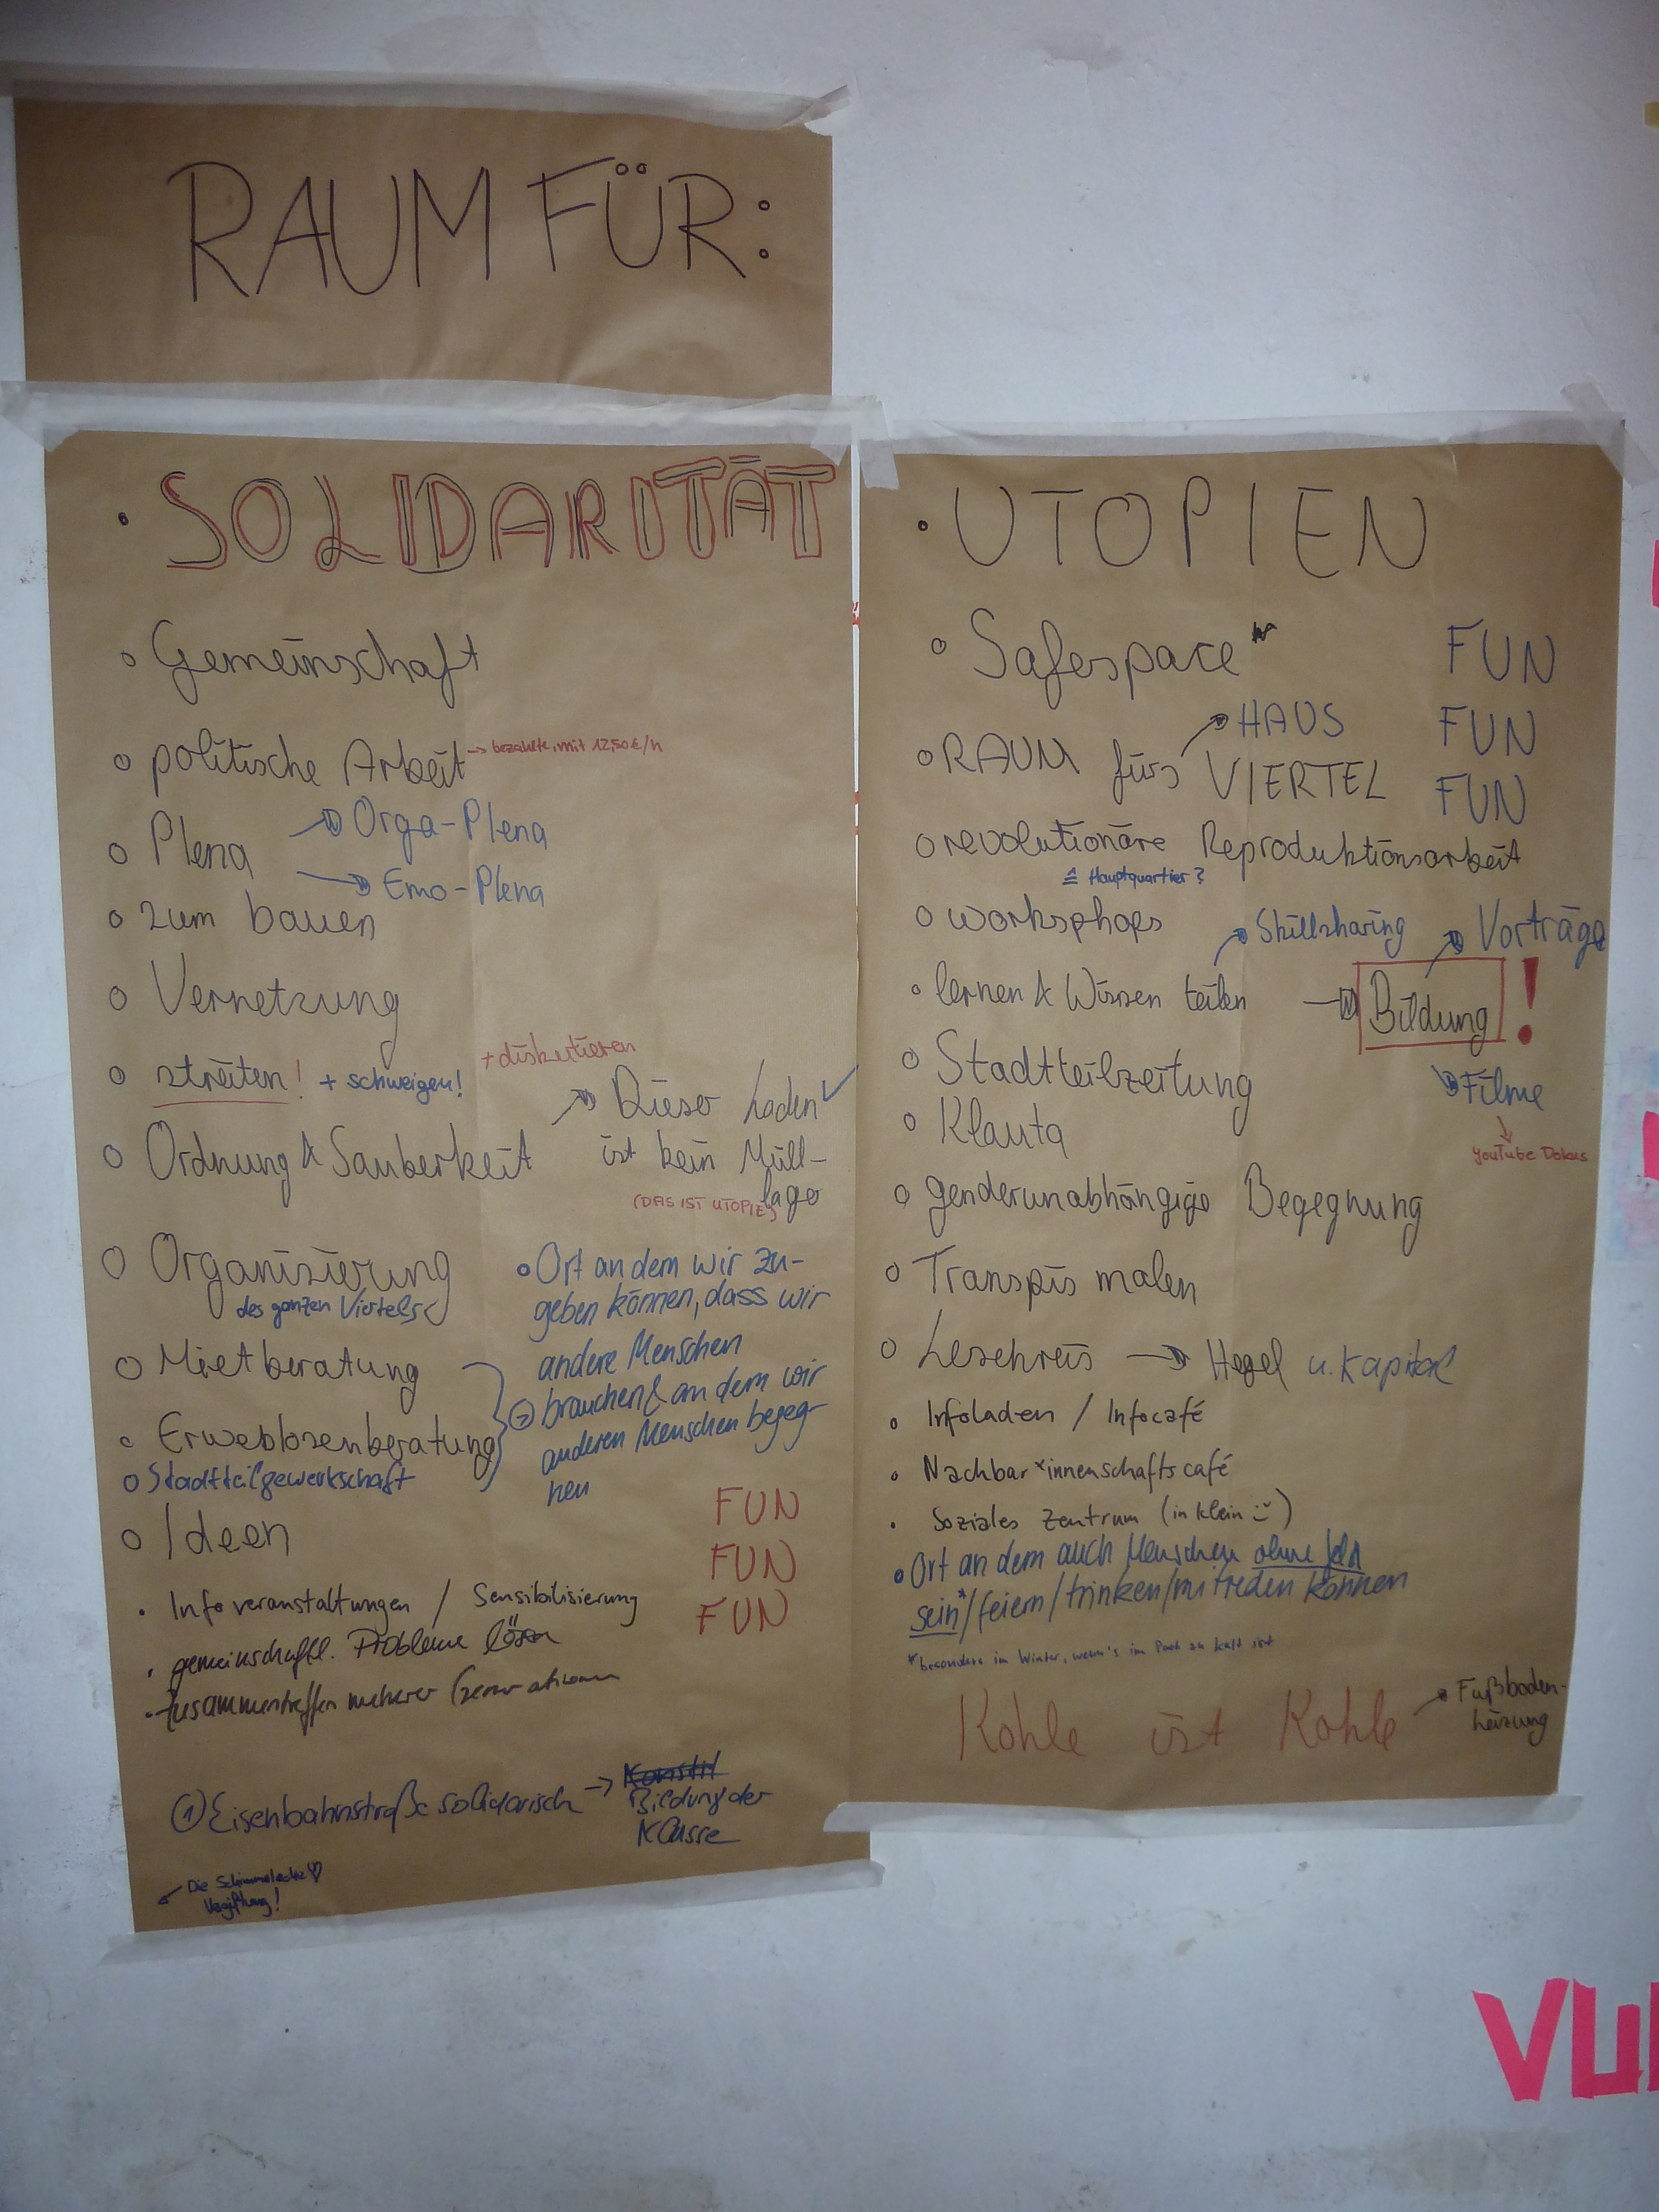 RAUM FÜR:
• SOLIDARITÄT
o Gemeinschaft
o politische Arbeit → bezahlte, mit 12,50€/h
o Plena → Orga-Plena
→ Emo-Plena
o zum bauen
o Vernetzung
o streiten! + schweigen! + diskutieren
o Ordnung & Sauberkeit → Dieser Laden ✓
ist kein Müll-
lager
(DAS IST UTOPIE)
o Organisierung
des ganzen Viertels
o Mietberatung
o Erweblosenberatung
o Stadtteilgewerkschaft
o Ort an dem wir zu-
geben können, dass wir
andere Menschen
brauchen & an dem wir
anderen Menschen begeg-
nen
②
o Ideen
FUN
FUN
FUN
• Infoveranstaltungen / Sensibilisierung
• gemeinschaftl. Probleme lösen
• Zusammentreffen meherer Generationen
① Eisenbahnstraße solidarisch → Konstit
Bildung der
Klasse
Die Schimmelecke ♡
Vergiftung!
• UTOPIEN
o Safespace
FUN
FUN
FUN
o RAUM fürs VIERTEL
→ HAUS
o revolutionäre Reproduktionsarbeit
≙ Hauptquartier?
o worksphops
o lernen & Wissen teilen → Bildung !
→ Skillsharing
→ Vorträge
→ Filme
↓
YouTube Dokus
o Stadtteilzeitung
o Klauta
o genderunabhängige Begegnung
o Transpis malen
o Lesekreis → Hegel u. Kapital
o Infoladen / Infocafé
• Nachbar*innenschaftscafé
• Soziales Zentrum (in klein :))
• Ort an dem auch Menschen ohne Geld
sein*/feiern/trinken/mitreden können
*besonders im Winter, wenn's im Park zu kalt ist
Kohle ist Kohle → Fußboden-
heizung
VU